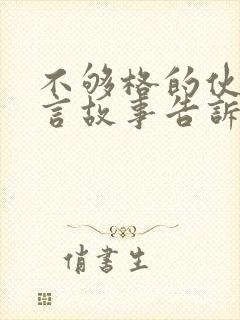 不够格的伙
言故事告訴
俏書生